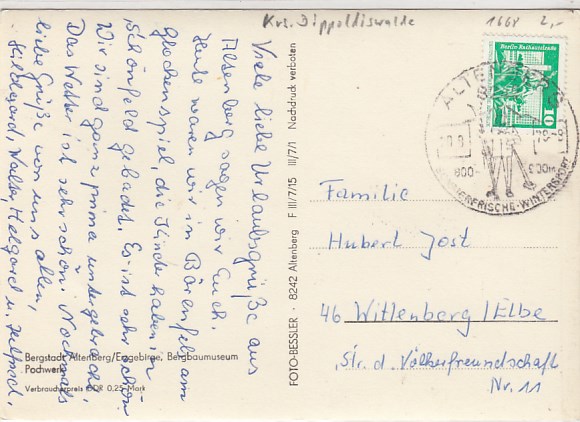 Krs. Dippoldiswalde
1668 2,-
Viele liebe Urlaubsgrüße aus
Altenberg sagen wir Euch.
Heute waren wir in Bärenfels am
Glockenspiel, die Kinder haben in
Schönfeld gebadet. Es ist sehr schön
Wir sind ganz prima untergebracht,
Das Wetter ist sehr schön. Nochmals
liebe Grüße von uns allen,
Hildegard, Walter, Helgard u.
Bergstadt Altenberg/Erzgebirge, Bergbaumuseum
Pochwerk
Verbraucherpreis DDR 0,25 Mark
FOTO-BESSLER · 8242 Altenberg F III/7/15 III/7/1 Nachdruck verboten
Berlin Rathausstraße
10
DDR
ALTENBERG
800- 900m
SOMMERFRISCHE-WINTERSPORT
Familie
Hubert Jost
46 Wittenberg/Elbe
Str. d. Völkerfreundschaft
Nr. 11